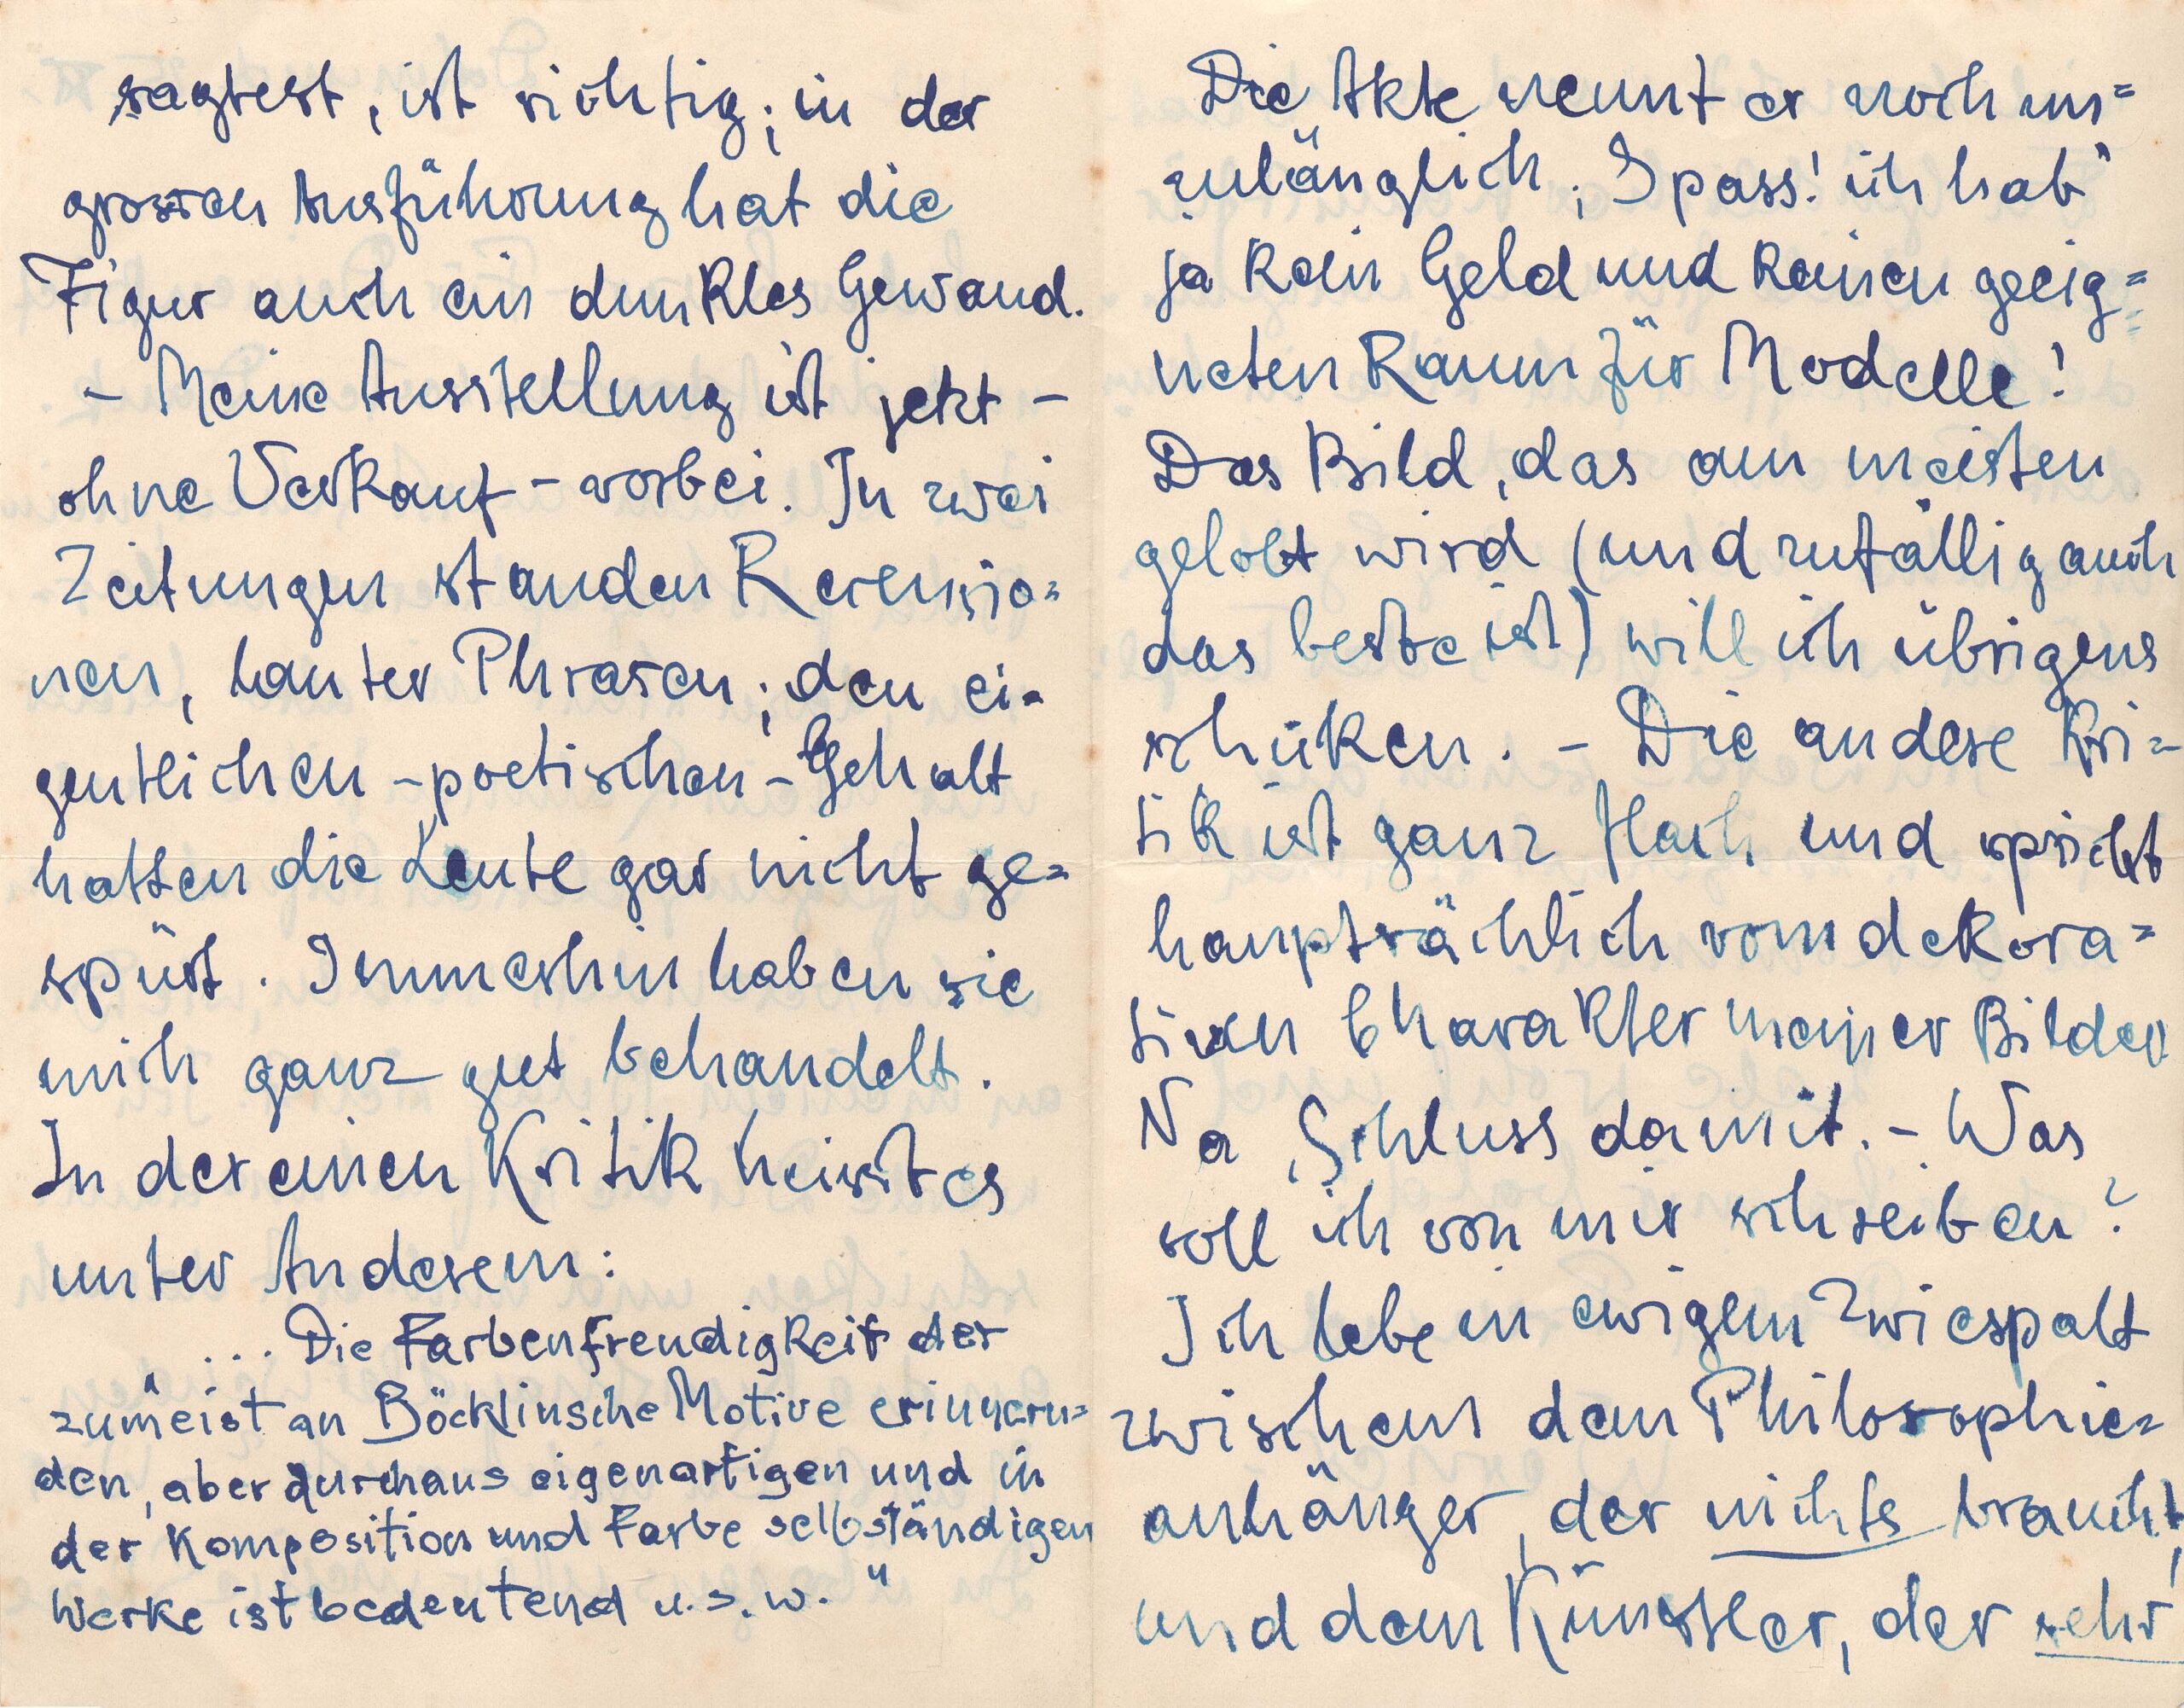 sagtest, ist richtig; in der
grossen Ausführung hat die
Figur auch ein dunkles Gewand.
- Meine Ausstellung ist jetzt -
ohne Verkauf - vorbei. In zwei
Zeitungen standen Rezensio=
nen, lauter Phrasen; den ei=
gentlichen - poetischen - Gehalt
hatten die Leute gar nicht ge=
spürt. Immerhin haben sie
mich ganz gut behandelt.
In der einen Kritik heisst es
unter Anderem:
"... Die Farbenfreudigkeit der
zumeist an Böcklinsche Motive erinnern=
den, aber durchaus eigenartigen und in
der Komposition und Farbe selbständigen
Werke ist bedeutend u.s.w."
Die Akte nennt er noch un=
zulänglich; Spass! ich hab'
ja kein Geld und keinen geeig=
neten Raum für Modelle!
Das Bild, das am meisten
gelobt wird (und zufällig auch
das beste ist) will ich übrigens
schicken. - Die andere Kri=
tik ist ganz flach und spricht
hauptsächlich vom dekora=
tiven Charakter meiner Bilder
Na, Schluss damit. - Was
soll ich von mir schreiben?
Ich lebe in ewigem Zwiespalt
zwischen dem Philosophie=
anhänger, der nichts braucht,
und dem Künstler, der sehr